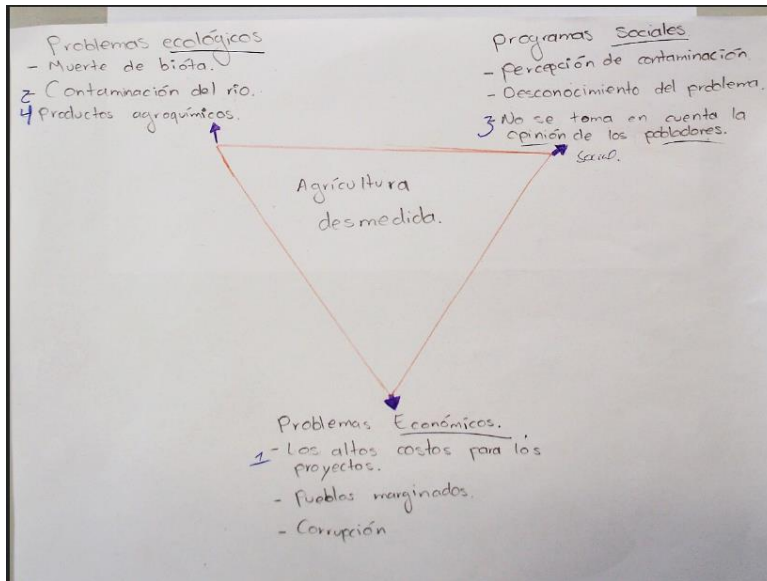 Problemas ecológicos
- Muerte de biota.
2 - Contaminación del rio.
4 Productos agroquímicos.
Programas Sociales
- Percepción de contaminación.
- Desconocimiento del problema.
3 - No se toma en cuenta la
opinión de los pobladores.
Agricultura
desmedida.
Problemas Económicos.
1 - Los altos costos para los
proyectos.
- Pueblos marginados.
- Corrupción